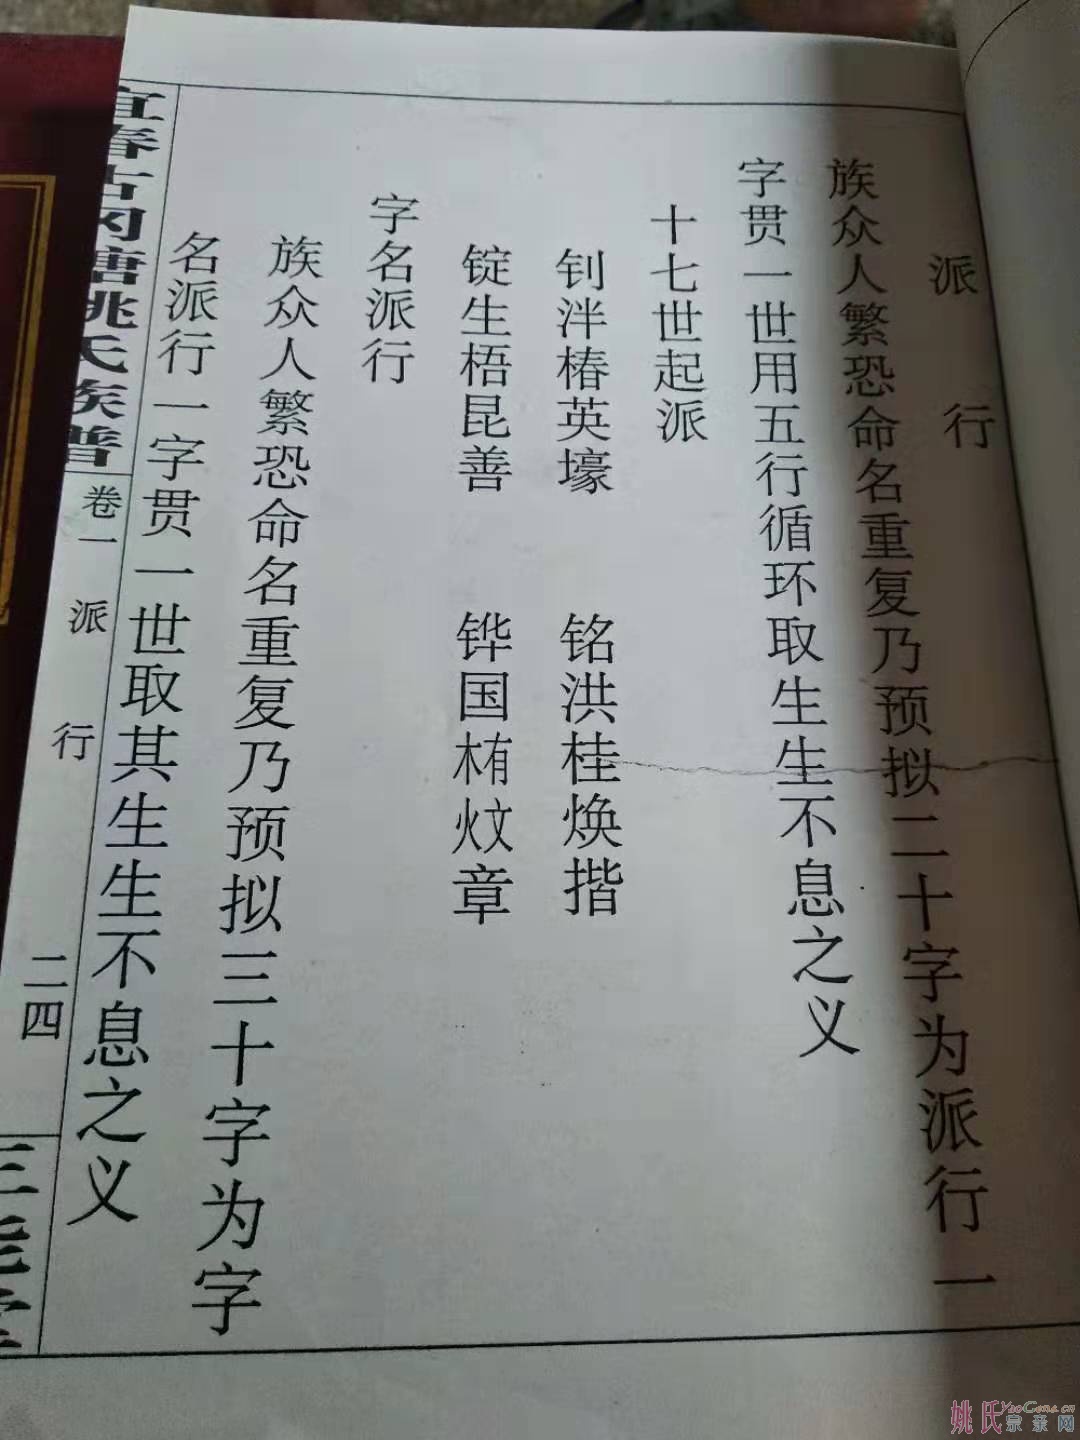 派行
族众人繁恐命名重复乃预拟二十字为派行一
字贯一世用五行循环取生生不息之义
十七世起派
钊泮椿英壕 铭洪桂焕揩
锭生梧昆善 铧国栯炆章
字名派行
族众人繁恐命名重复乃预拟三十字为字
名派行一字贯一世取其生生不息之义
宜春古冈塘姚氏族谱
卷一 派行
二四
姚氏宗亲网
YaoGens.cn